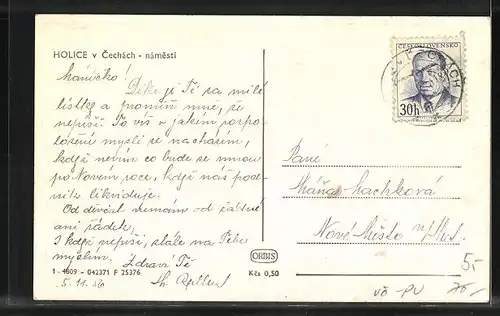 HOLICE v Čechách - náměstí
Maničko!
Děkuji Ti za milé
lístky a promiň mně, že
nepíši. To víš v jakém rozpo-
ložení mysli se nacházím,
když nevím co bude se mnou
po Novém roce, když náš pod-
nik likvidují.
Od děvčat nemám od žádné
ani řádek.
I když nepíši, stále na Tebe
myslím. Zdraví Tě
1 - 4609 - 042371 F 25376
5.11.56
ORBIS
Kčs 0,50
ČESKOSLOVENSKO
30h
Paní
Máňa Machková
Nové Město n/Met.
5,-